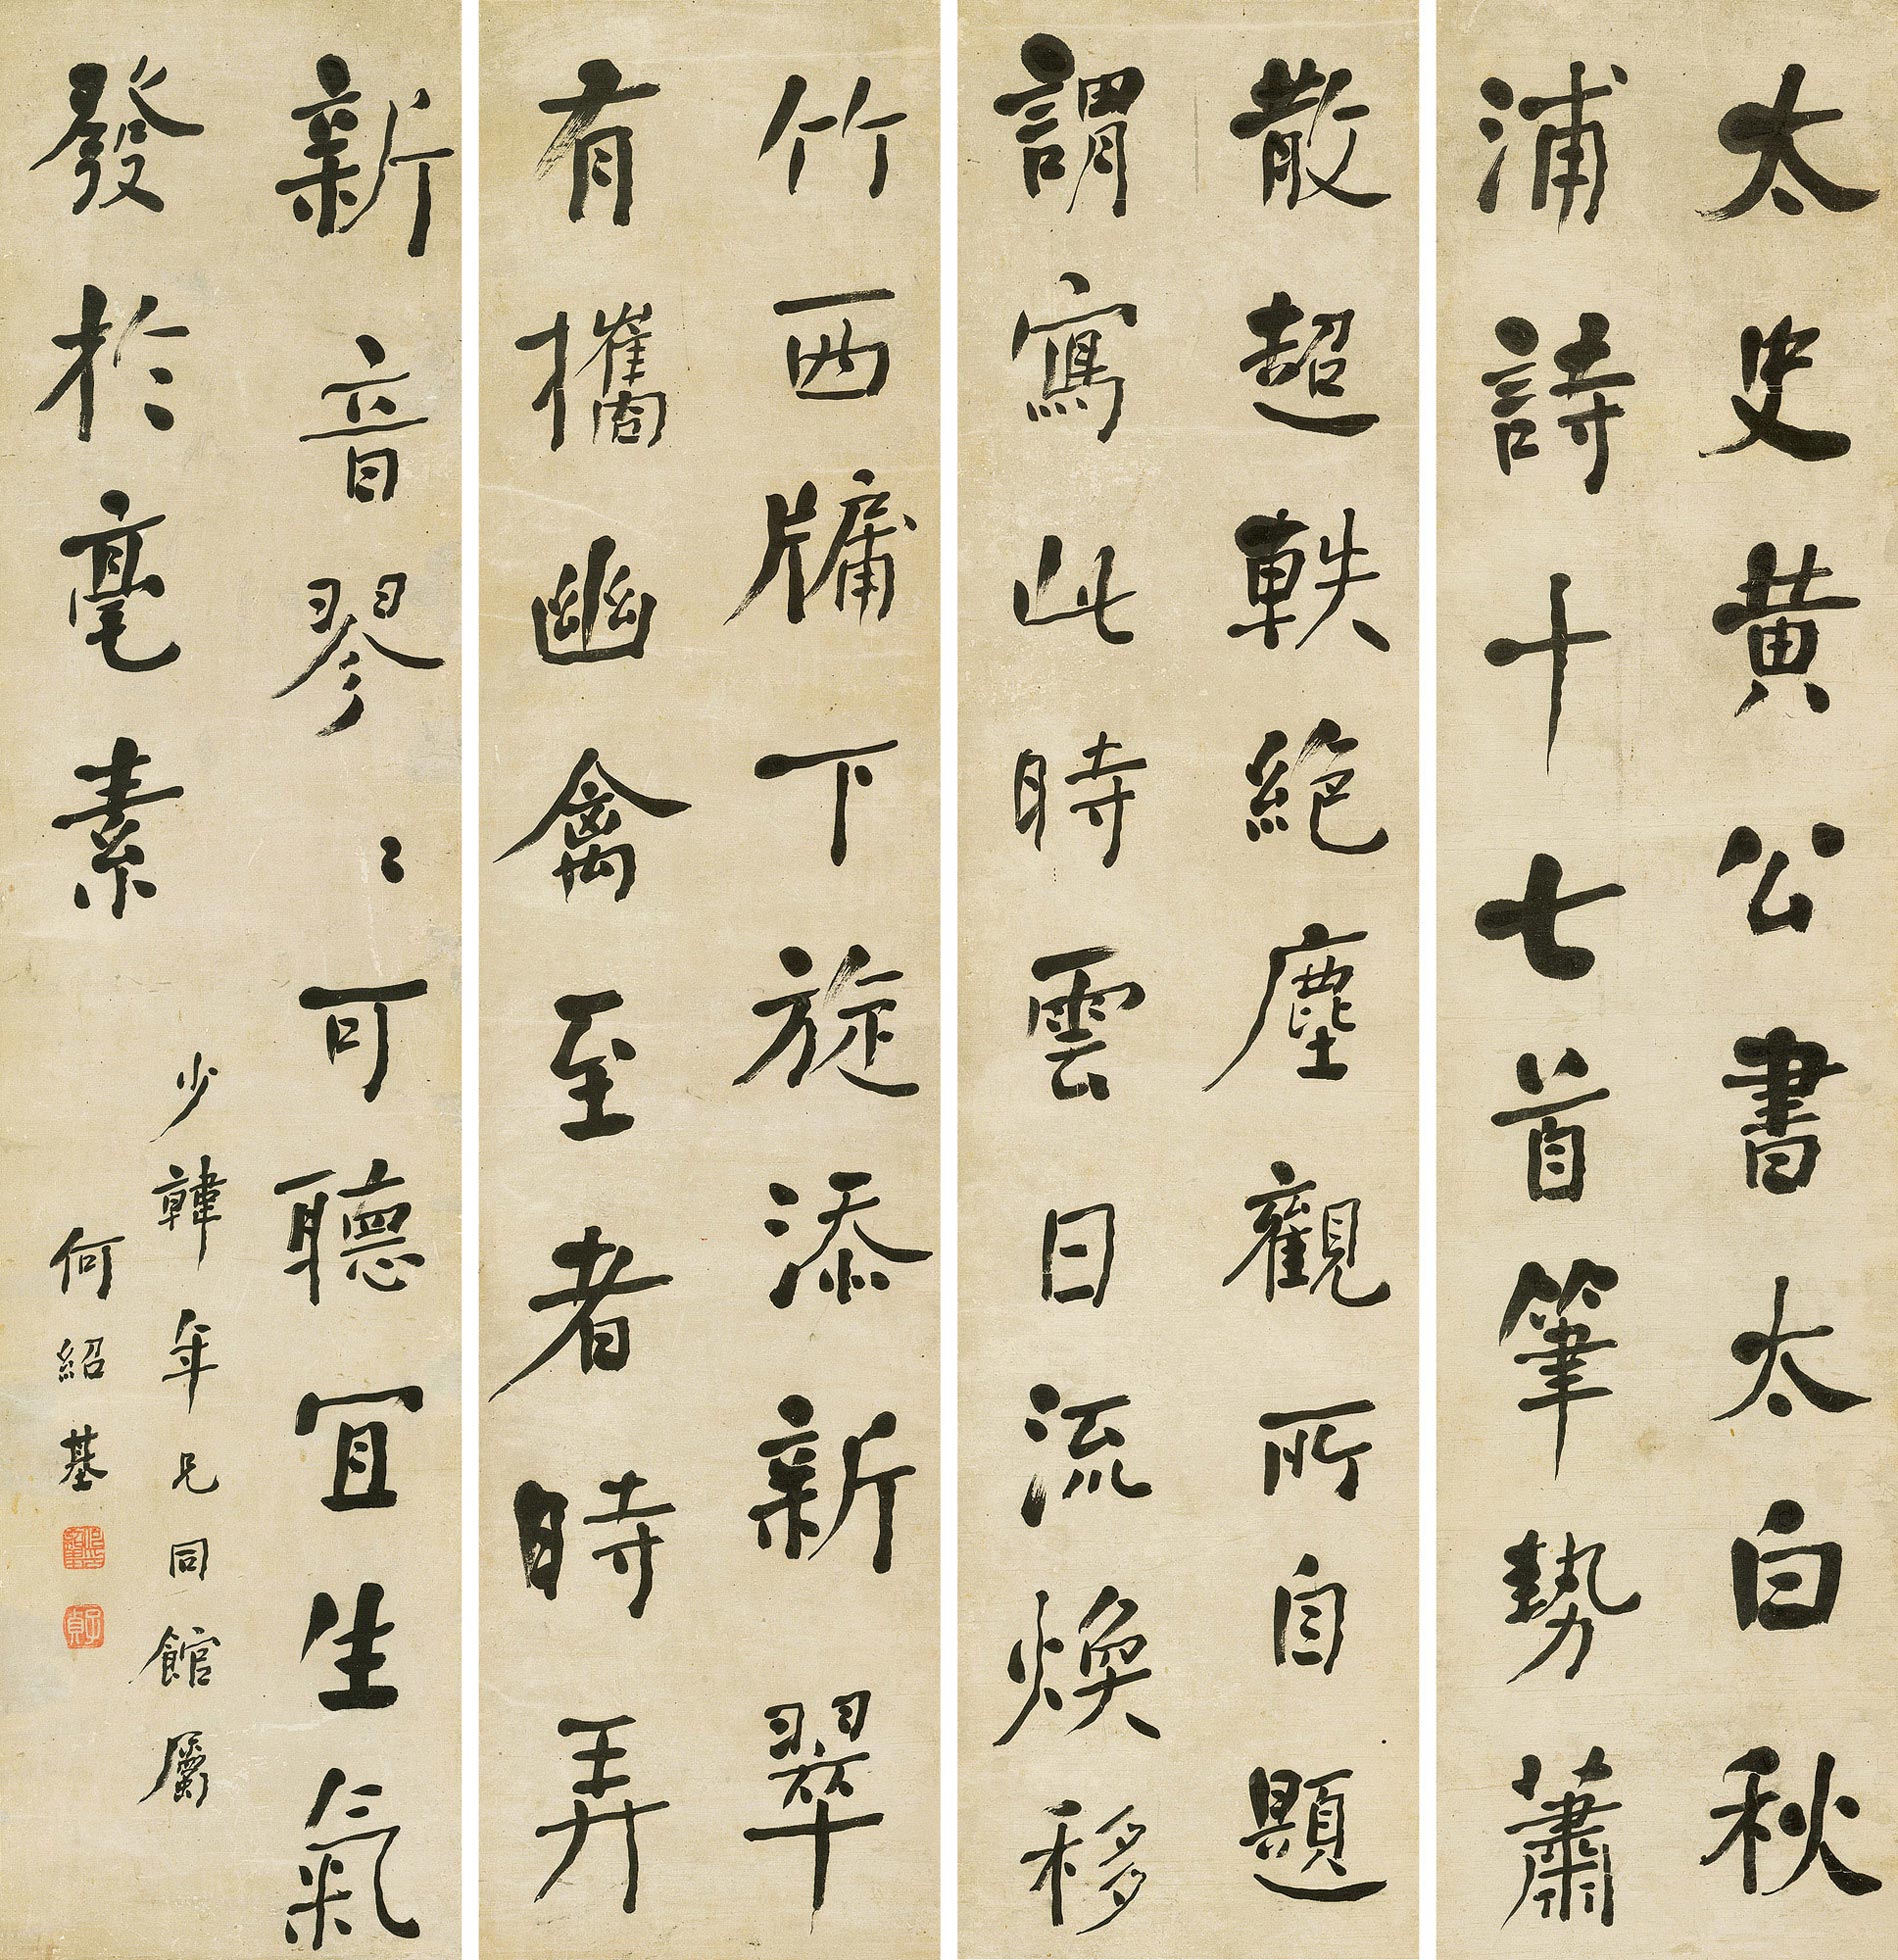 太史黄公書太白秋
浦詩十七首筆勢蕭
散超軼絶塵觀所自題
謂寫此時雲日流煥移
竹西牖下旋添新翠
有攜幽禽至者時弄
新音翏〻可聽宜生氣
發於毫素
少韓年兄同館屬
何紹基
子貞